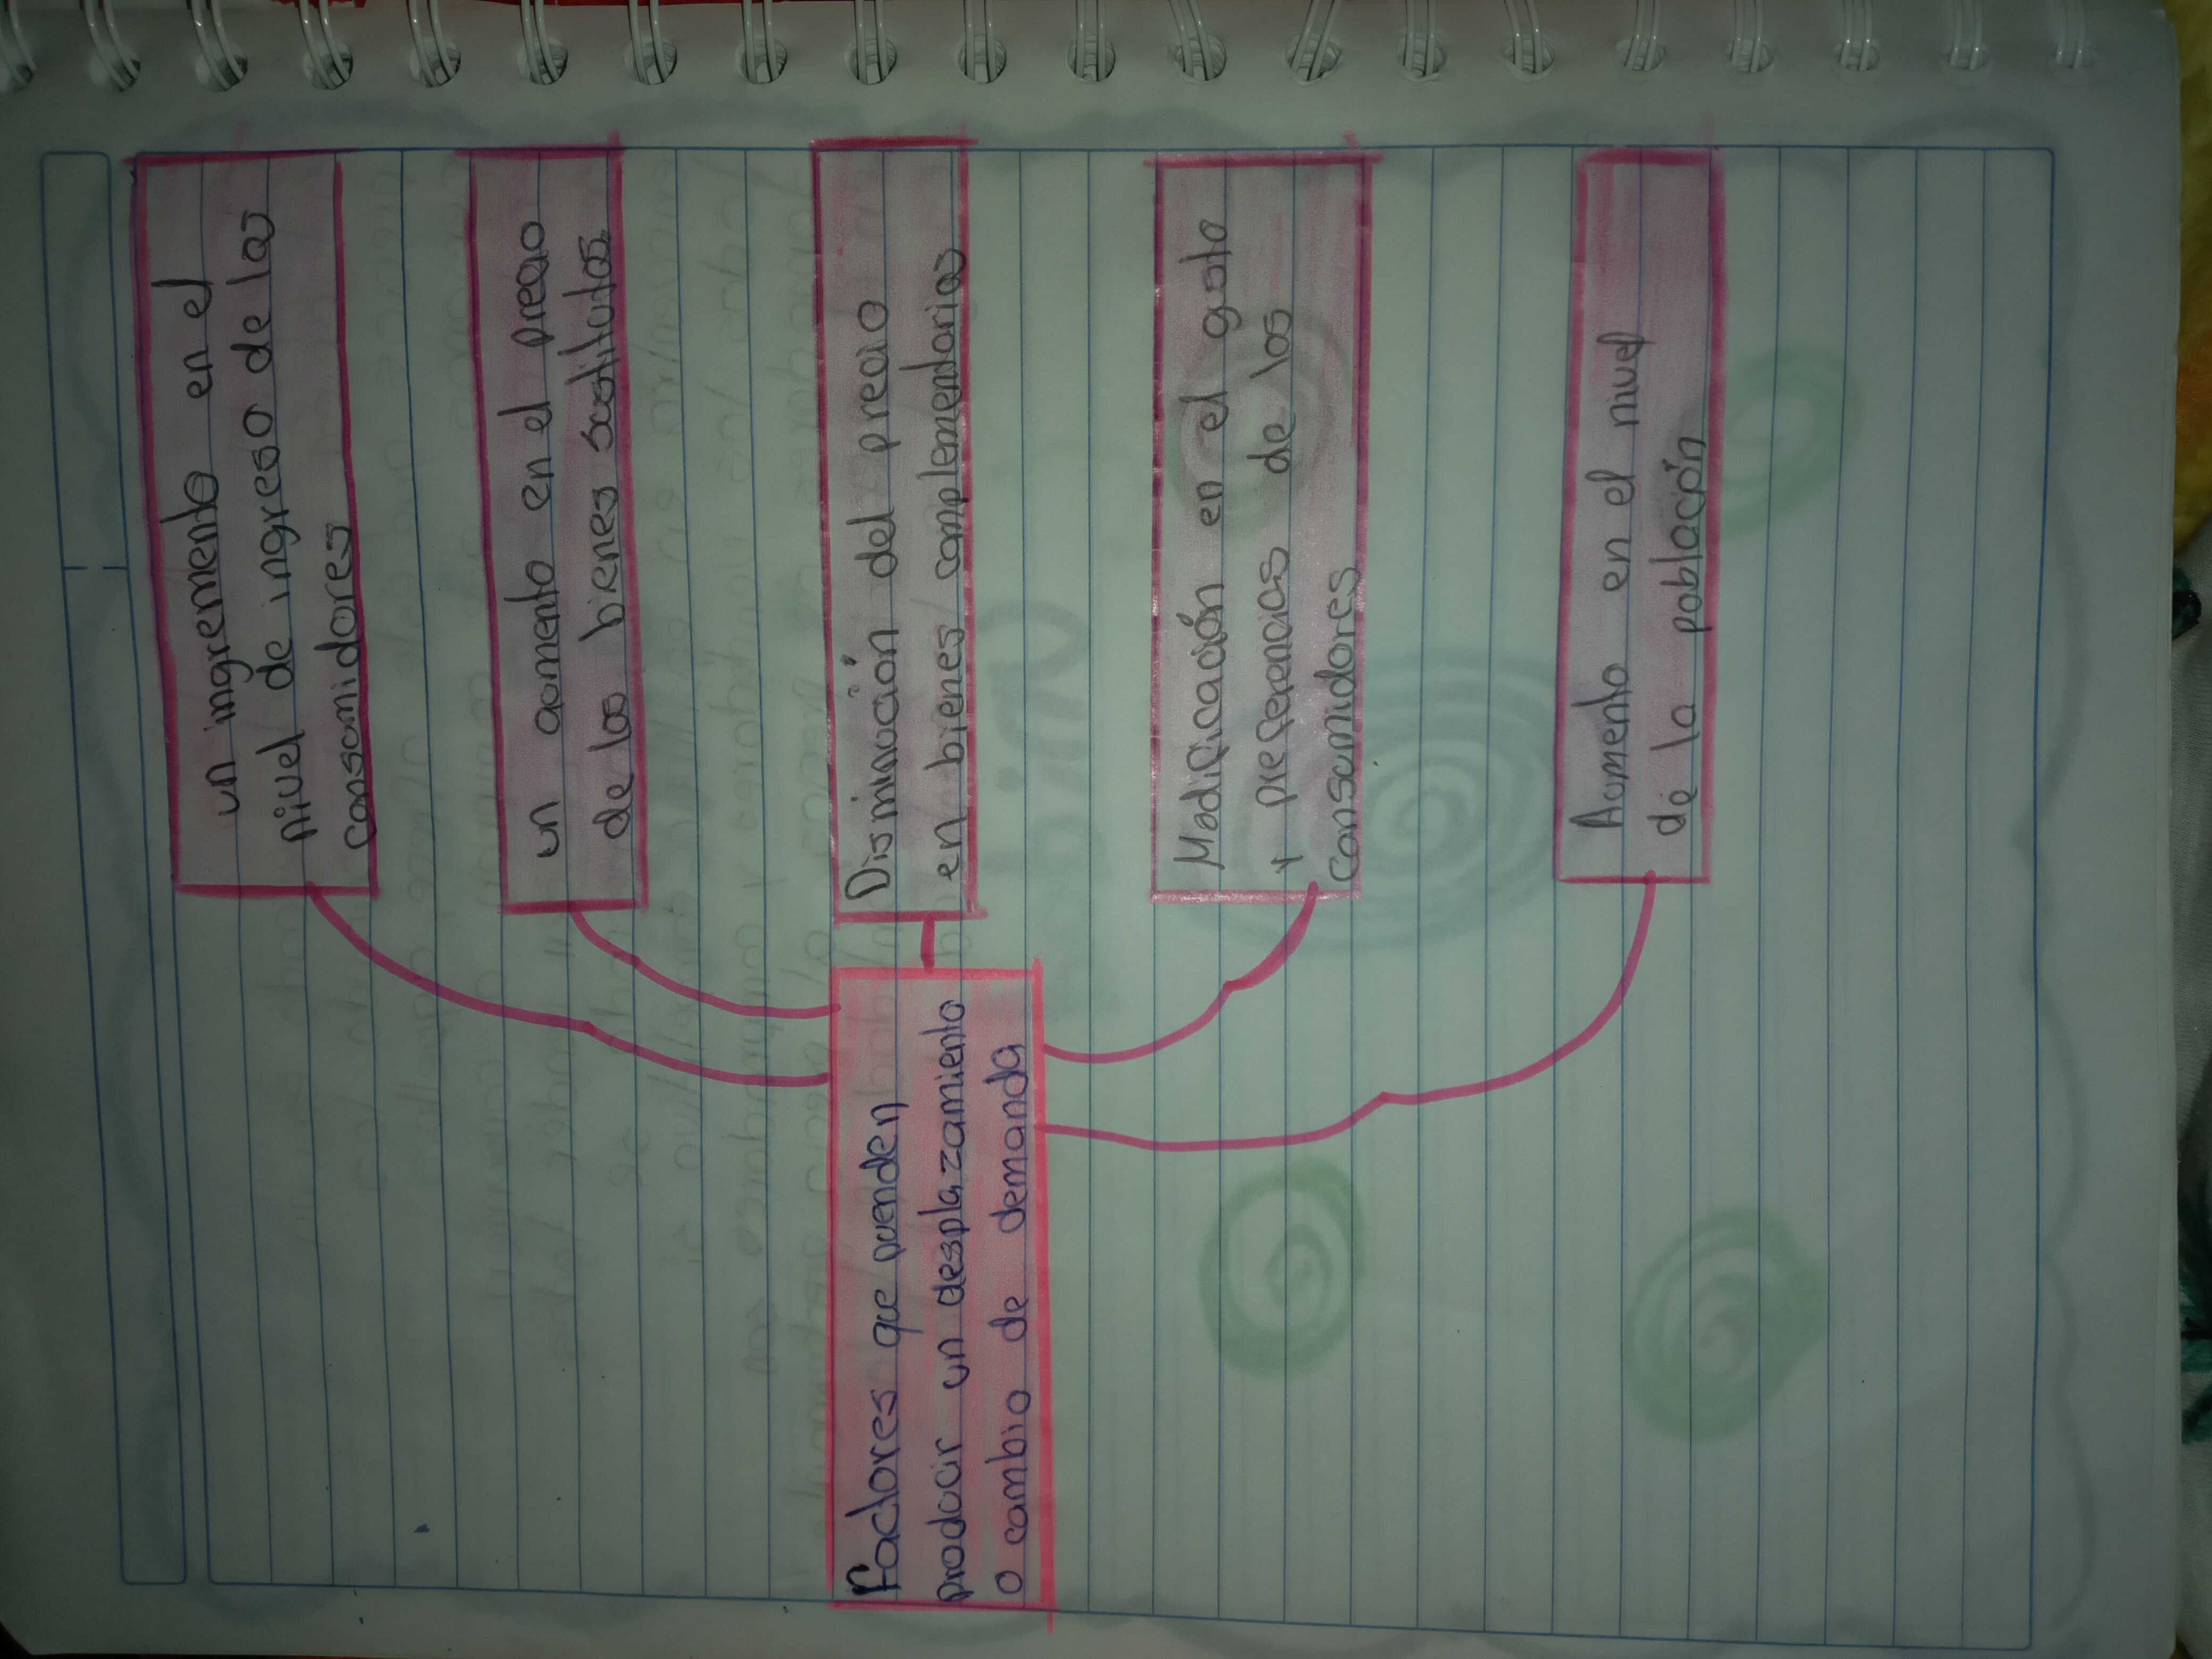 Factores que puenden
producir un desplazamiento
o cambio de demanda
un ingremento en el
nivel de ingreso de los
consumidores
un aumento en el precio
de los bienes sustitutos
Disminución del precio
en bienes complementarios
Modificación en el gusto
y preferencias de los
consumidores
Aumento en el nivel
de la población